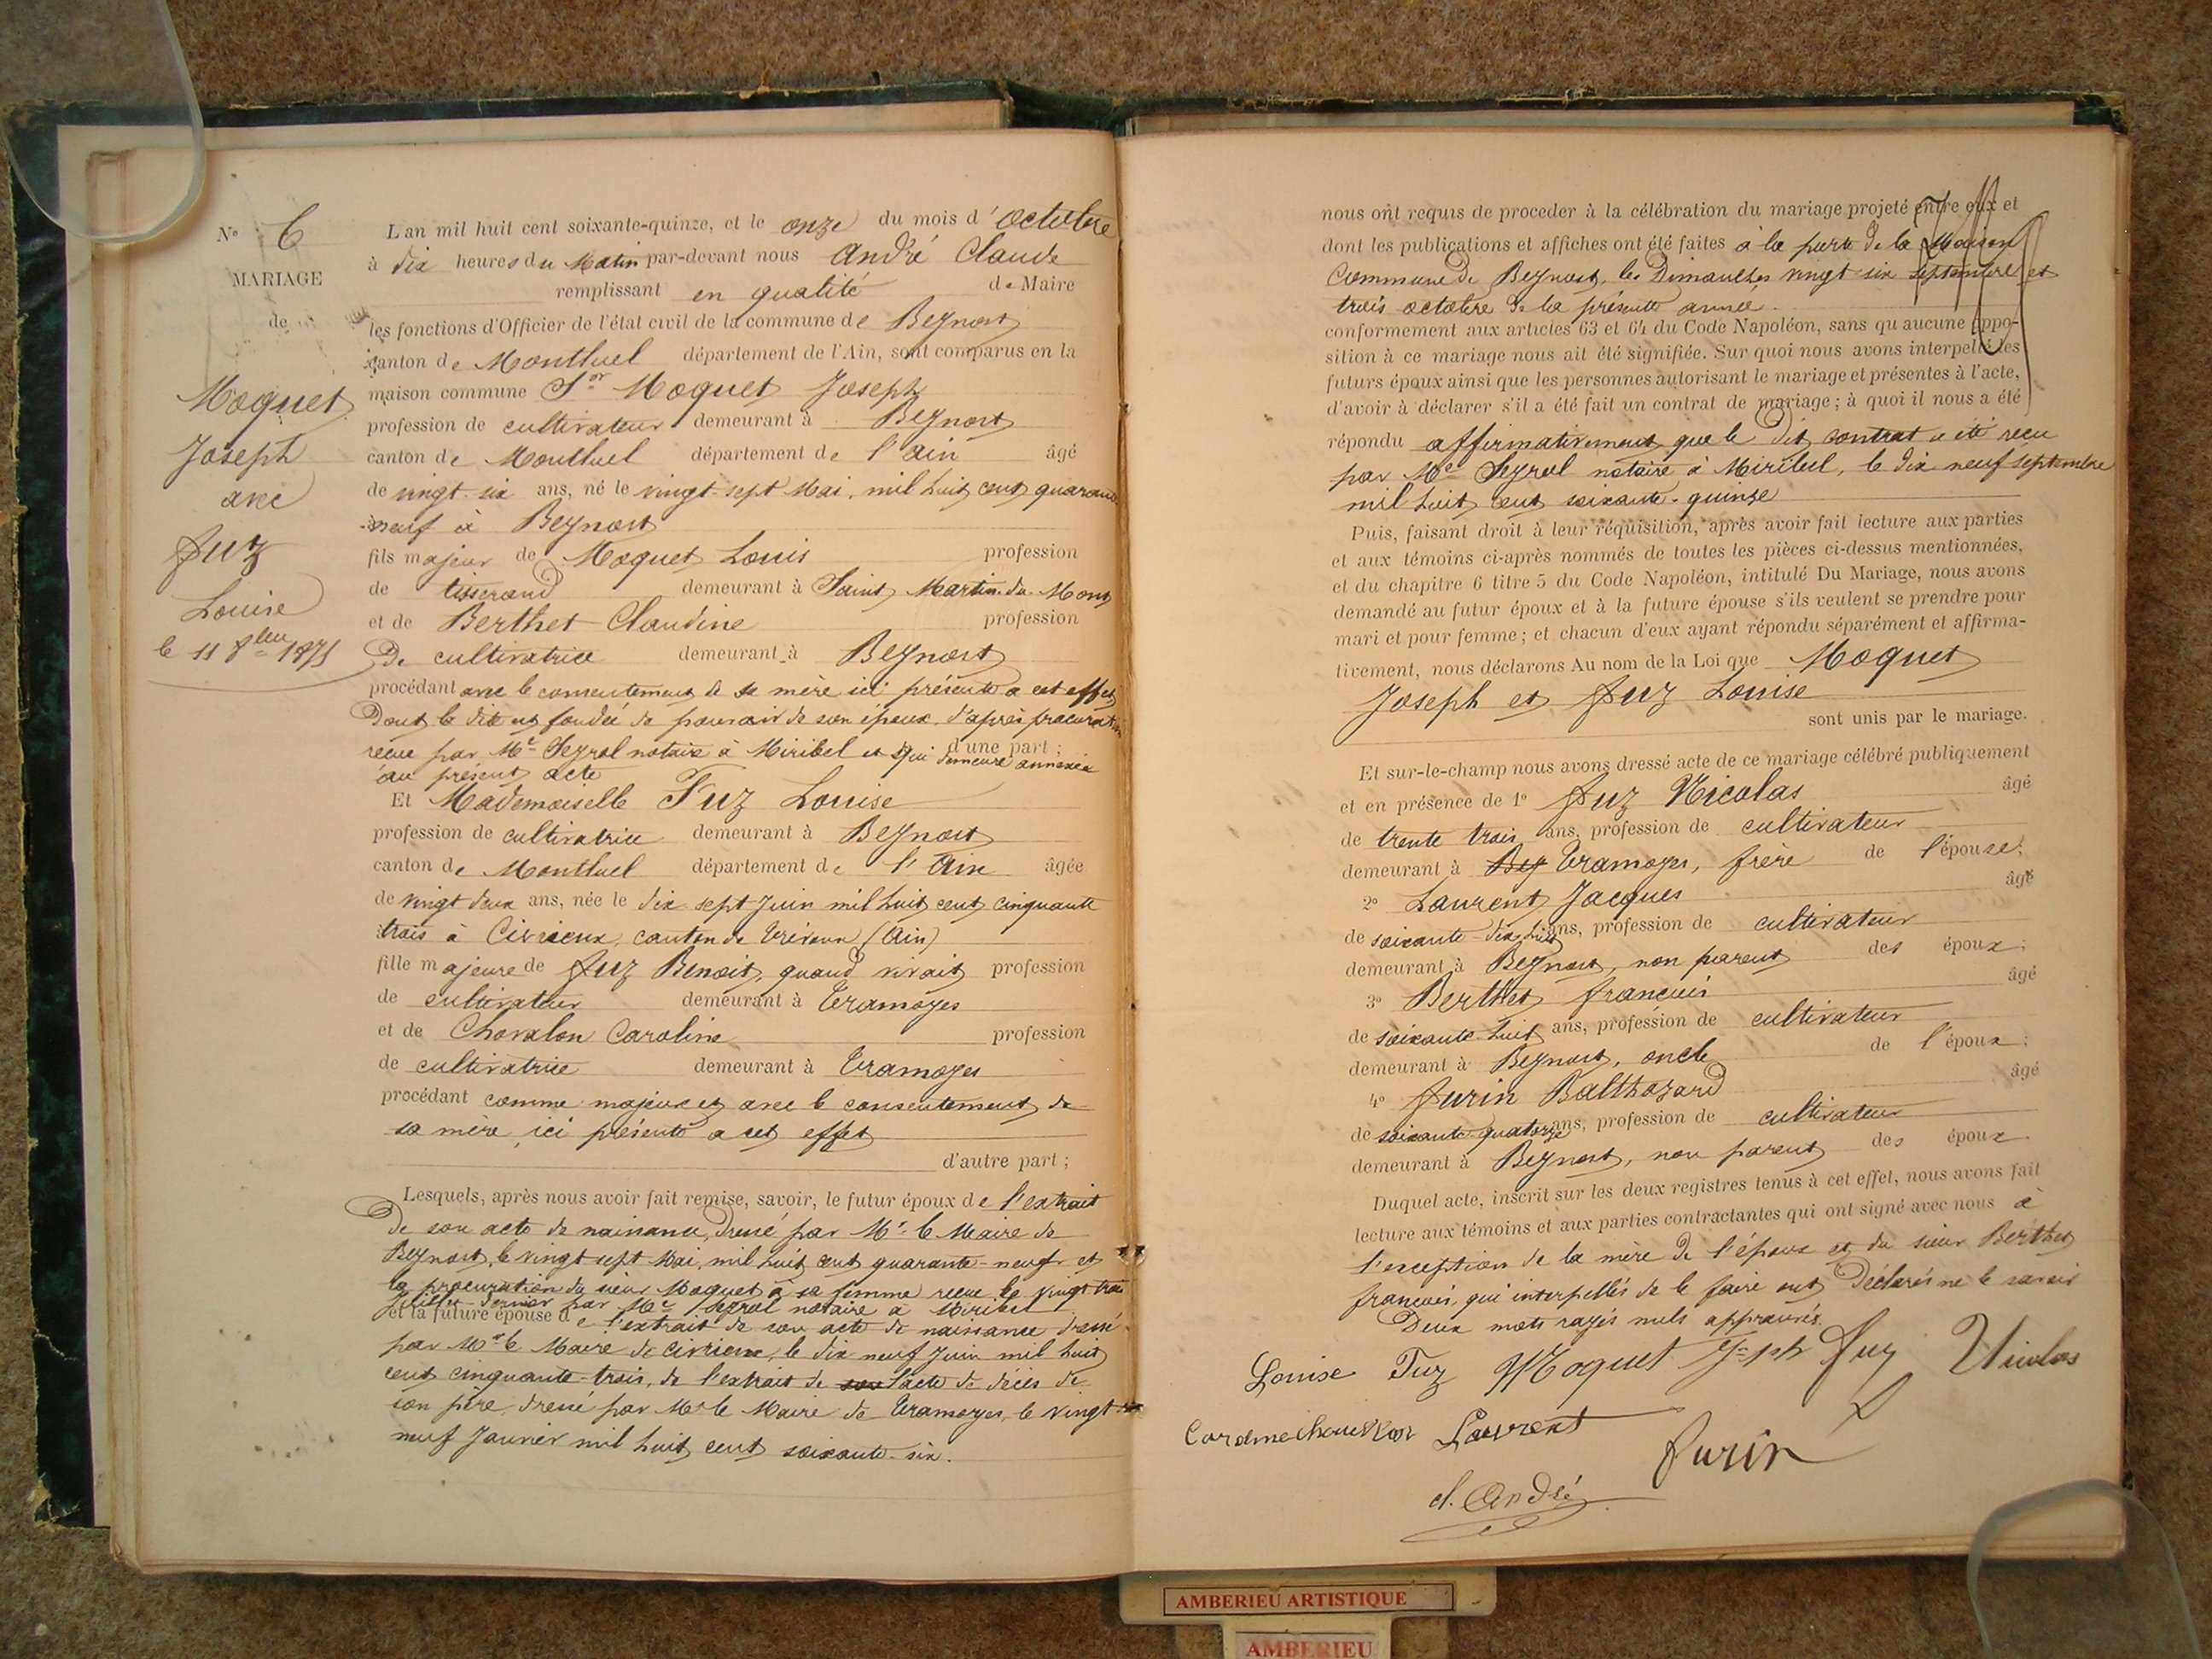 N° 6
MARIAGE
de
Moquet
Joseph
avec
Fuz
Louise
le 11 8bre 1875
L'an mil huit cent soixante-quinze, et le onze du mois d'octobre
à dix heures du Matin par-devant nous André Claude
remplissant en qualité de Maire
les fonctions d'Officier de l'état civil de la commune de Beynost
canton de Montluel département de l'Ain, sont comparus en la
maison commune Sr Moquet Joseph
profession de cultivateur demeurant à Beynost
canton de Montluel département de l'Ain âgé
de vingt-six ans, né le vingt-sept Mai, mil huit cent quarante
neuf à Beynost
fils majeur de Moquet Louis profession
de tisserand demeurant à Saint Martin-du-Mont
et de Berthet Claudine profession
De cultivatrice demeurant à Beynost
procédant avec le consentement de sa mère ici présente a cet effet
Dont la dite est fondée de pouvoir de son époux, d'après procuration
reçue par Me Seyrol notaire à Miribel et qui demeure annexée d'une part ;
au présent acte
Et Mademoiselle Fuz Louise
profession de cultivatrice demeurant à Beynost
canton de Montluel département de l'Ain âgée
de vingt deux ans, née le dix sept Juin mil huit cent cinquante
trois à Civrieux, canton de Trévoux (Ain)
fille majeure de Fuz Benoit, quand vivait profession
de cultivateur demeurant à Tramoyes
et de Chovalon Caroline profession
de cultivatrice demeurant à Tramoyes
procédant comme majeure et avec le consentement de
sa mère, ici présente a cet effet
d'autre part ;
Lesquels, après nous avoir fait remise, savoir, le futur époux de l'extrait
De son acte de naissance, dressé par Mr le Maire de
Beynost, le vingt sept Mai, mil huit cent quarante-neuf et
la procuration du sieur Moquet à sa femme reçue le vingt trois
Juillet dernier par Me Seyrol notaire à Miribel
et la future épouse de l'extrait de son acte de naissance dressé
par Mr le Maire de Civrieux, le dix neuf Juin mil huit
cent cinquante-trois, de l'extrait de son l'acte de décès de
son père, dressé par Mr le Maire de Tramoyes, le vingt
neuf Janvier mil huit cent soixante-six.
nous ont requis de proceder à la célébration du mariage projeté entre eux et
dont les publications et affiches ont été faites à la porte de la Maison
Commune de Beynost, les Dimanches vingt six septembre et
trois octobre de la présente année
conformement aux articles 63 et 64 du Code Napoléon, sans qu'aucune oppo-
sition à ce mariage nous ait été signifiée. Sur quoi nous avons interpellé les
futurs époux ainsi que les personnes autorisant le mariage et présentes à l'acte,
d'avoir à déclarer s'il a été fait un contrat de mariage ; à quoi il nous a été
répondu affirmativement que le dit contrat a été reçu
par Me Seyrol notaire à Miribel, le dix neuf septembre
mil huit cent soixante-quinze
Puis, faisant droit à leur réquisition, après avoir fait lecture aux parties
et aux témoins ci-après nommés de toutes les pièces ci-dessus mentionnées,
et du chapitre 6 titre 5 du Code Napoléon, intitulé Du Mariage, nous avons
demandé au futur époux et à la future épouse s'ils veulent se prendre pour
mari et pour femme ; et chacun d'eux ayant répondu séparément et affirma-
tivement, nous déclarons Au nom de la Loi que Moquet
Joseph et Fuz Louise
sont unis par le mariage.
Et sur-le-champ nous avons dressé acte de ce mariage célébré publiquement
et en présence de 1° Fuz Nicolas âgé
de trente trois ans, profession de cultivateur
demeurant à Bey Tramoyes, frère de l'épouse ;
2° Laurent Jacques âgé
de soixante-dix huit ans, profession de cultivateur
demeurant à Beynost, non parent des époux ;
3° Berthet françois âgé
de soixante-huit ans, profession de cultivateur
demeurant à Beynost, oncle de l'époux ;
4° Furin Balthazard âgé
de soixante-quatorze ans, profession de cultivateur
demeurant à Beynost, non parent des époux
Duquel acte, inscrit sur les deux registres tenus à cet effet, nous avons fait
lecture aux témoins et aux parties contractantes qui ont signé avec nous à
l'exception de la mère de l'époux et du sieur Berthet
françois, qui interpellés de le faire ont déclarés ne le savoir
Deux mots rayés nuls approuvés.
Louise Fuz Moquet Jph Fuz Nicolas
Laurent
Furin
cl. André
AMBERIEU ARTISTIQUE
AMBERIEU